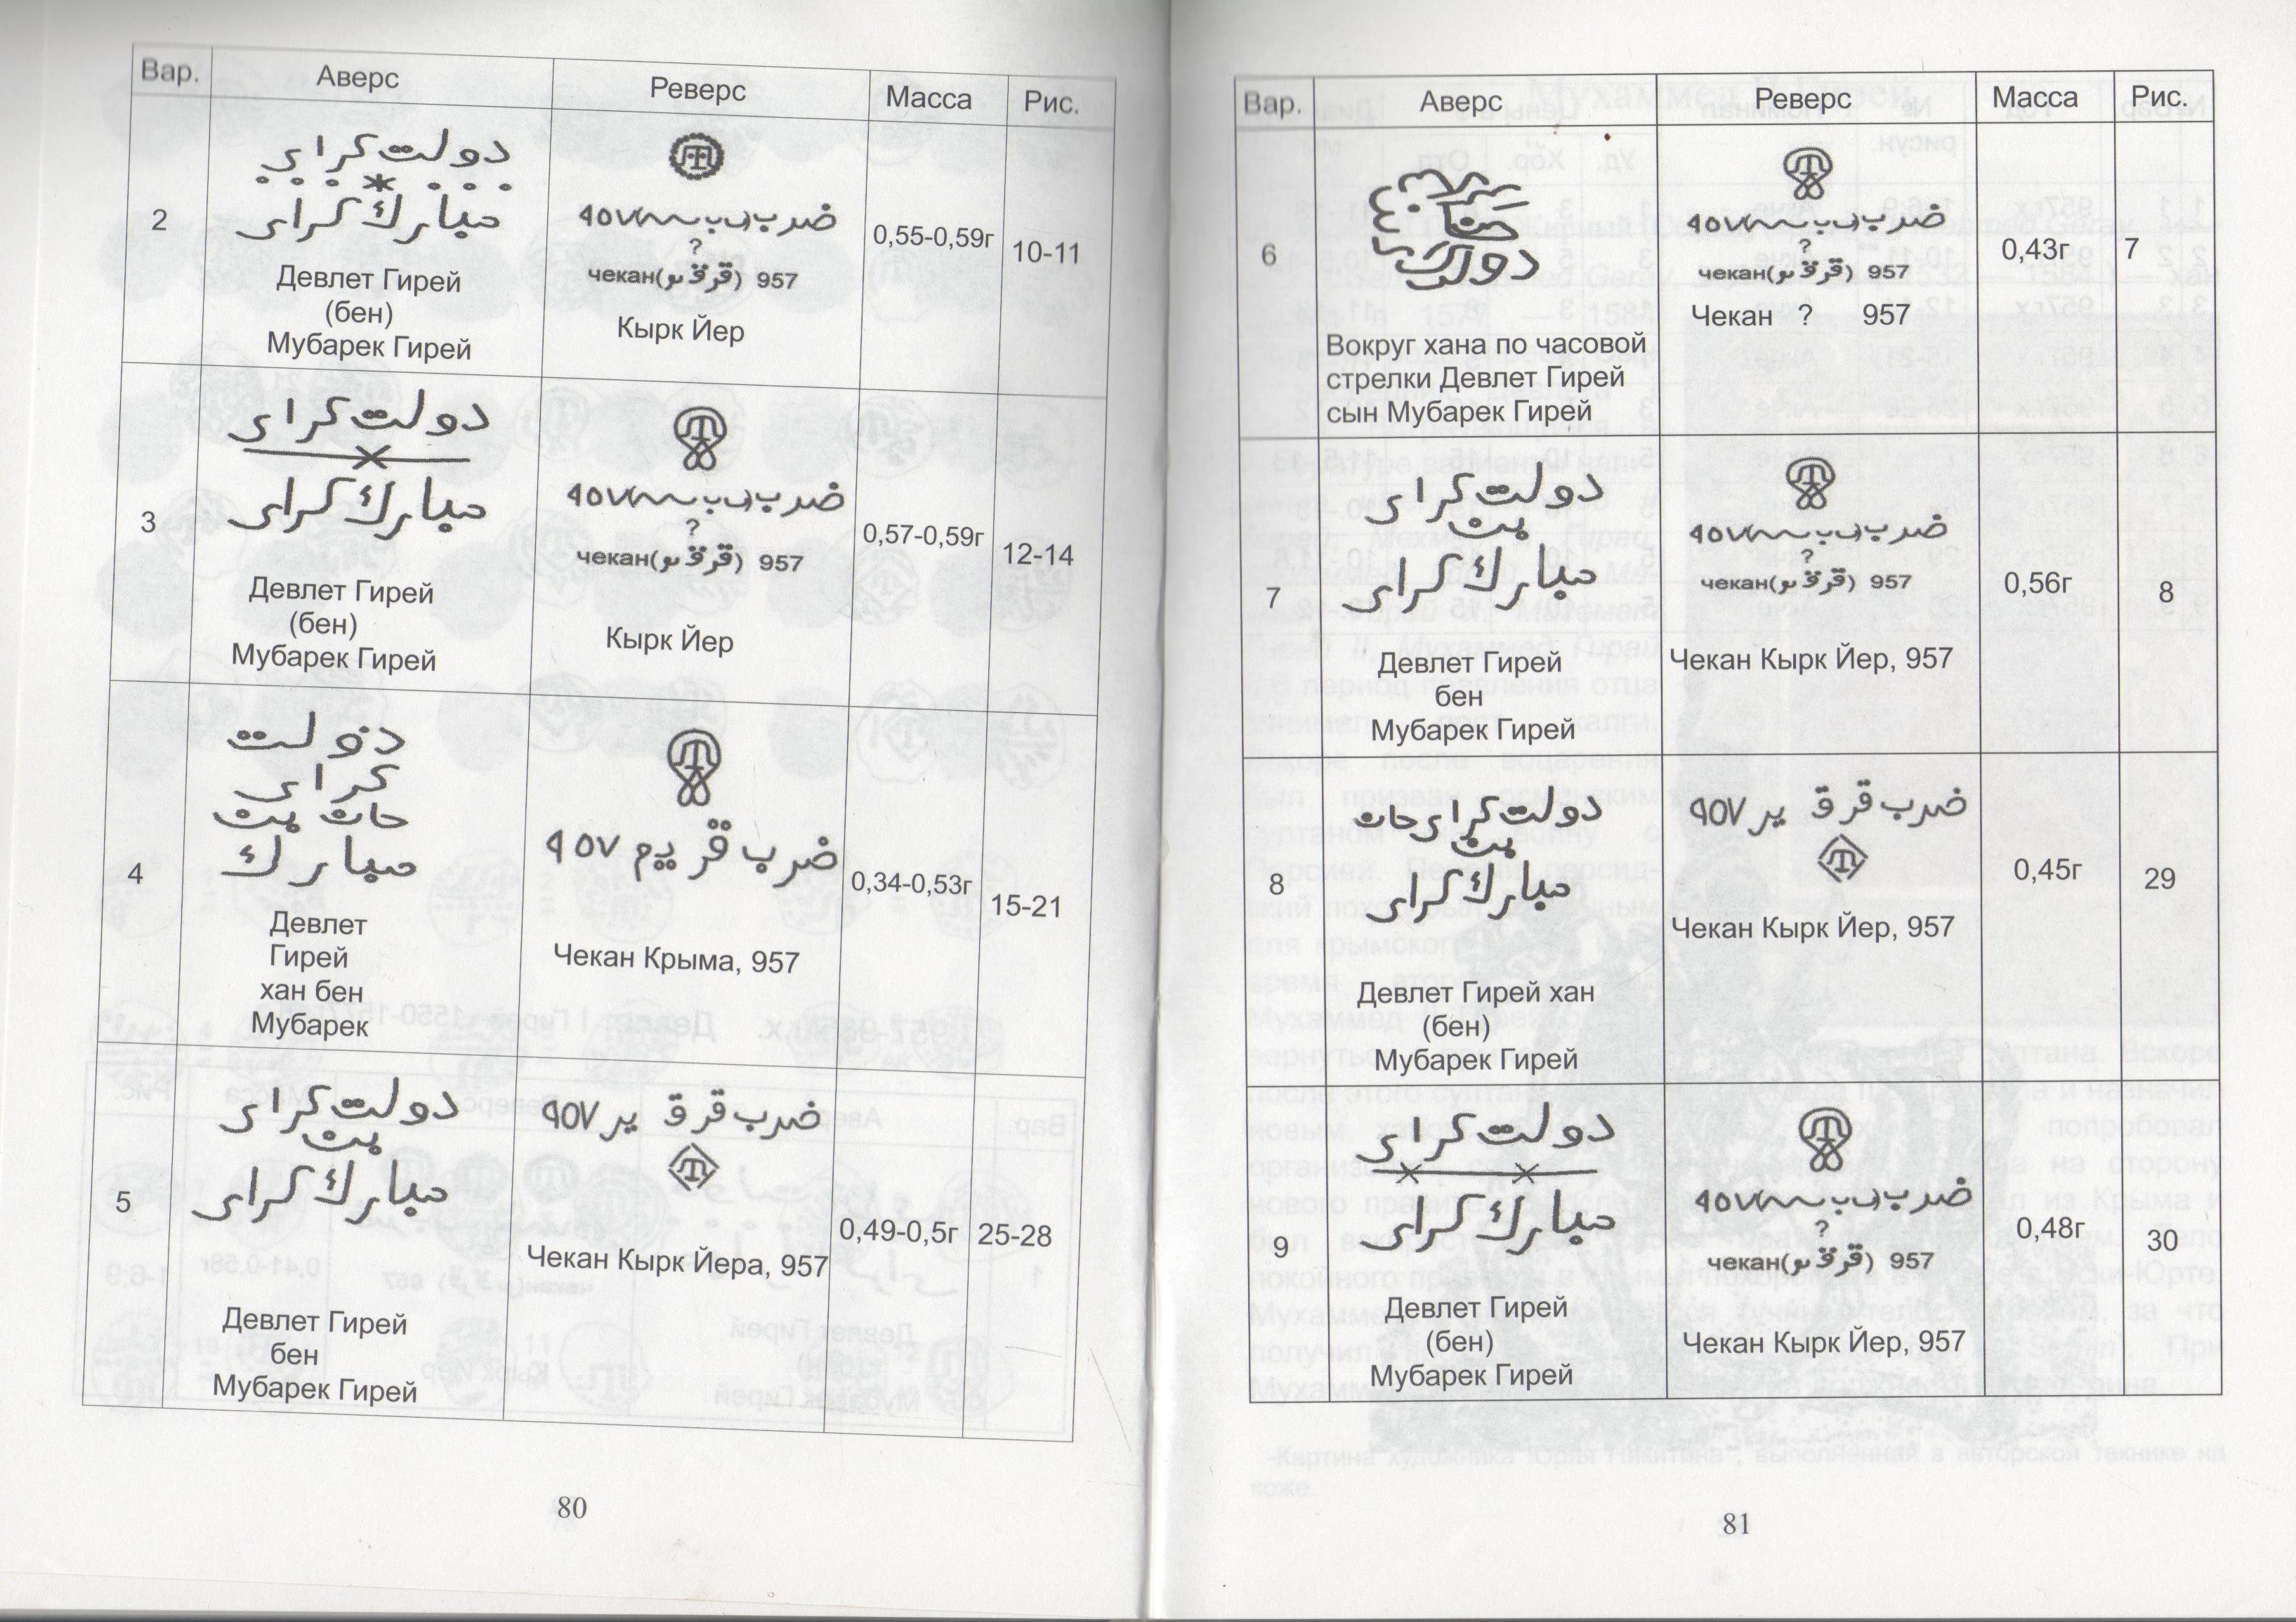 Вар. Аверс Реверс Масса Рис.
2
دولت كراى
مبارك كراى
Девлет Гирей
(бен)
Мубарек Гирей
ضرب
٩٥٧
?
чекан( ) 957
Кырк Йер
0,55-0,59г
10-11
3
دولت كراى
مبارك كراى
Девлет Гирей
(бен)
Мубарек Гирей
ضرب
٩٥٧
?
чекан( ) 957
Кырк Йер
0,57-0,59г
12-14
4
دولت
كراى
خان بن
مبارك
Девлет
Гирей
хан бен
Мубарек
ضرب قريم ٩٥٧
Чекан Крыма, 957
0,34-0,53г
15-21
5
دولت كراى
بن
مبارك كراى
Девлет Гирей
бен
Мубарек Гирей
ضرب قرق ير ٩٥٧
Чекан Кырк Йера, 957
0,49-0,5г
25-28
80
Вар. Аверс Реверс Масса Рис.
6
دولت
Вокруг хана по часовой
стрелки Девлет Гирей
сын Мубарек Гирей
ضرب
٩٥٧
?
чекан( ) 957
Чекан ? 957
0,43г
7
7
دولت كراى
بن
مبارك كراى
Девлет Гирей
бен
Мубарек Гирей
ضرب
٩٥٧
?
чекан( ) 957
Чекан Кырк Йер, 957
0,56г
8
8
دولت كراى خان
بن
مبارك كراى
Девлет Гирей хан
(бен)
Мубарек Гирей
ضرب قرق ير ٩٥٧
Чекан Кырк Йер, 957
0,45г
29
9
دولت كراى
مبارك كراى
Девлет Гирей
(бен)
Мубарек Гирей
ضرب
٩٥٧
?
чекан( ) 957
Чекан Кырк Йер, 957
0,48г
30
81